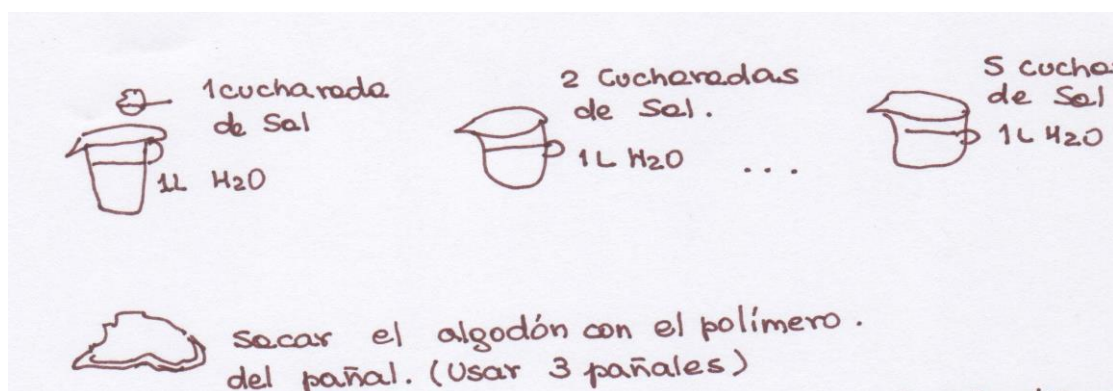 1 cucharada
de Sal
1L H2O
2 Cucharadas
de Sal.
1L H2O
...
5 cucha
de Sal
1L H2O
Sacar el algodón con el polímero.
del pañal. (Usar 3 pañales)